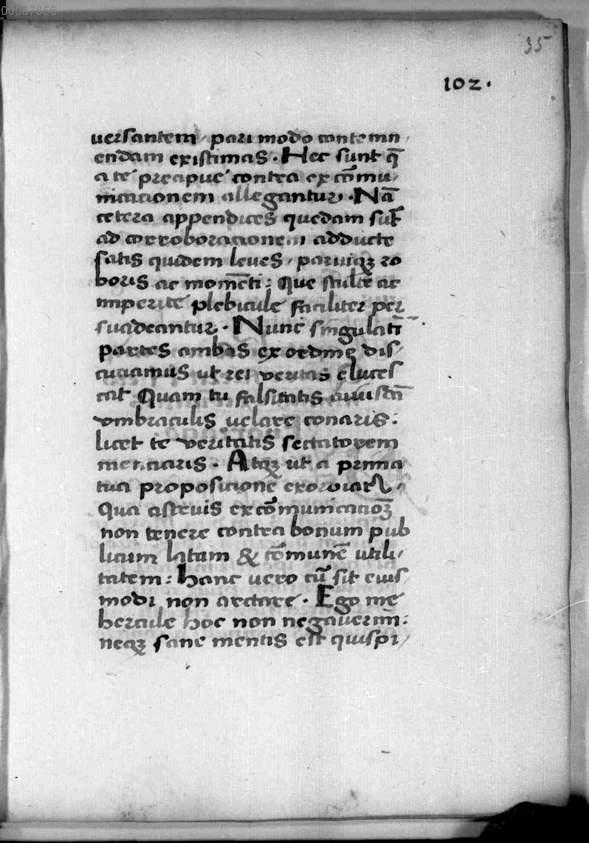 35
102.
versantem / pari modo contemn
endam existimas. Hec sunt q̄
a te precipue contra excōmu/
nicationem allegantur. Nā
cetera appendices quedam sūt
ad corroborationem adducte
satis quidem leues / paruiqꝫ ro
boris ac momēti: Que stulte ac
imperite plebicule faciliter per
suadeantur. Nunc singulatī
partes ambas ex ordine dis/
cutiamus ut rei veritas eluces
cat Quam tu falsitatis
vmbraculis velare conaris:
licet te veritatis sectatorem
mentiaris. Atqꝫ ut a prima
tua propositione exordiar.
Qua astruis excōmunicationꝫ
non tenere contra bonum pub
licum latam & cōmunē utili/
tatem: hanc vero cū sit eius
modi non arctare. Ego me
hercule hoc non negauerim:
neqꝫ sane mentis est quispi/